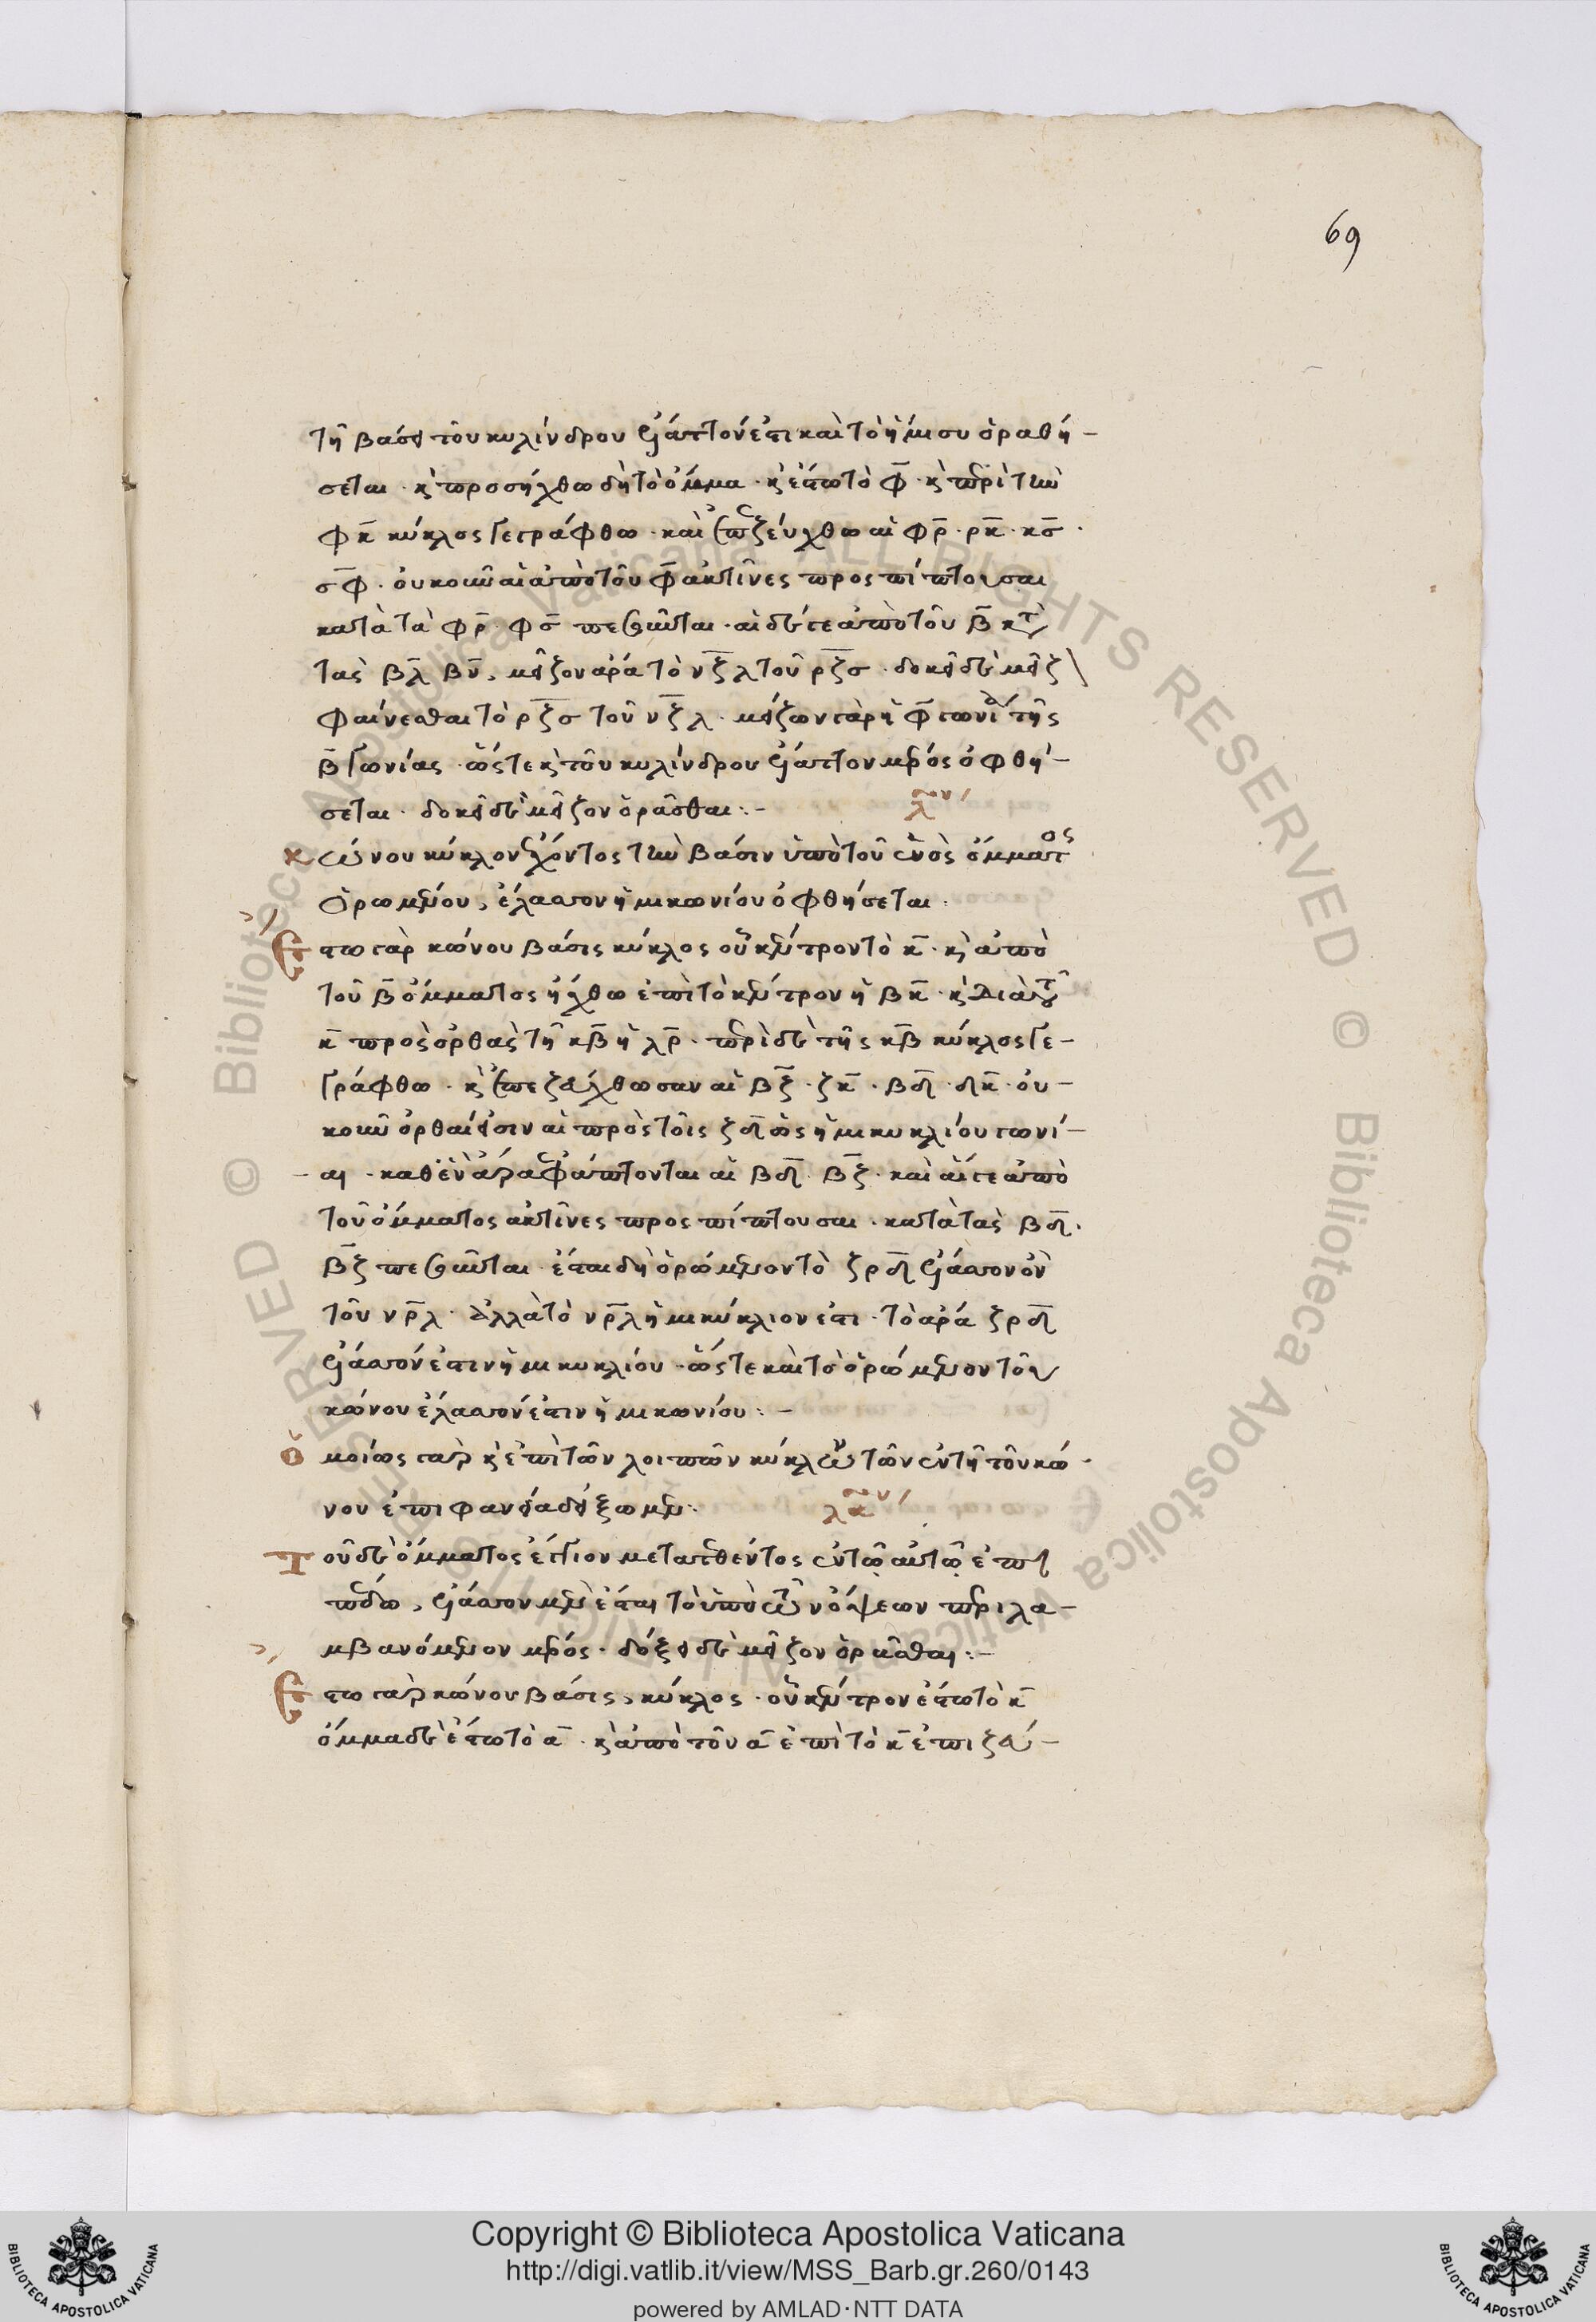 69
τῇ βάσει τοῦ κυλίνδρου ἔλαττόν ἐστι καὶ τὸ ἥμισυ ὁραθή-
σεται · κ̀ προσήχθω δὴ τὸ ὄμμα · κ̀ ἔστω τὸ φ̅ · κ̀ περὶ τὴν
φκ̅ κύκλος γεγράφθω · καὶ ἐπεζεύχθω αἱ φρ̅ · ρκ̅ · κσ̅ ·
σφ̅ · οὐκοῦν αἱ ἀπὸ τοῦ φ̅ ἀκτῖνες προσπίπτουσαι
κατὰ τὰ φρ̅ φσ̅ πεσοῦνται · αἱ δέ γε ἀπὸ τοῦ β̅ κτ̀
τὰς βλ̅ βν̅, μεῖζον ἄρα τὸ νξλ τοῦ ρζσ · δοκεῖ δὲ μεῖζ
φαίνεσθαι τὸ ρζσ τοῦ νξλ · μείζων γὰρ ἡ φ̅ γωνία τῆς
β̅ γωνίας · ὥστε κ̀ τοῦ κυλίνδρου ἔλαττον μέρος ὀφθή-
σεται · δοκεῖ δὲ μεῖζον ὁρᾶσθαι :-
λ
κώνου κύκλον ἔχοντος τὴν βάσιν ὑπὸ τοῦ ἑνὸς ὄμματος
ὁρωμένου, ἔλασσον ἡμικωνίου ὀφθήσεται ·
Ἔστω γὰρ κώνου βάσις κύκλος οὗ κέντρον τὸ κ̅ · κ̀ ἀπὸ
τοῦ β̅ ὄμματος ἤχθω ἐπὶ τὸ κέντρον ἡ βκ̅ · κ̀ διὰ τοῦ
κ̅ πρὸς ὀρθὰς τῇ κβ̅ ἡ λρ̅ · περὶ δὲ τῆς κβ̅ κύκλος γε-
γράφθω · κ̀ ἐπεζεύχθωσαν αἱ βζ̅ · ζκ̅ · βδ̅ · δκ̅ · οὐ-
κοῦν ὀρθαί εἰσιν αἱ πρὸς τοῖς ζδ̅ ὡς ἡμικυκλίου γωνί-
αι · καθ' ἓν ἄρα ἐφάπτονται αἱ βδ̅ βζ̅ · καὶ αἵ γε ἀπὸ
τοῦ ὄμματος ἀκτῖνες προσπίπτουσαι · κατὰ τὰς βδ̅ ·
βζ̅ πεσοῦνται · ἔσται δὴ ὁρώμενον τὸ ζρδ̅ ἔλασσον ὂν
τοῦ νρλ̅ · ἀλλὰ τὸ νρλ̅ ἡμικύκλιον ἐστι · τὸ ἄρα ζρδ̅
ἔλασσόν ἐστιν ἡμικυκλίου · ὥστε καὶ τὸ ὁρώμενον τοῦ
κώνου ἔλασσόν ἐστιν ἡμικωνίου :-
ὁμοίως γὰρ κ̀ ἐπὶ τῶν λοιπῶν κύκλων τῶν ἐν τῇ τοῦ κώ-
νου ἐπιφανείᾳ δείξωμεν ·
λα
Τοῦ δὲ ὄμματος ἔγγιον μετατεθέντος ἐν τῷ αὐτῷ ἐπι
πέδῳ, ἔλασσον μὲν ἔσται τὸ ὑπὸ τῶν ὄψεων περιλα-
μβανόμενον μέρος · δόξει δὲ μεῖζον ὁρᾶσθαι :-
Ἔστω γὰρ κώνου βάσις, κύκλος · οὗ κέντρον ἔστω τὸ κ̅
ὄμμα δὲ ἔστω τὸ α̅ · κ̀ ἀπὸ τοῦ α̅ ἐπὶ τὸ κ̅ ἐπιζεύ-
Copyright © Biblioteca Apostolica Vaticana
http://digi.vatlib.it/view/MSS_Barb.gr.260/0143
powered by AMLAD·NTT DATA